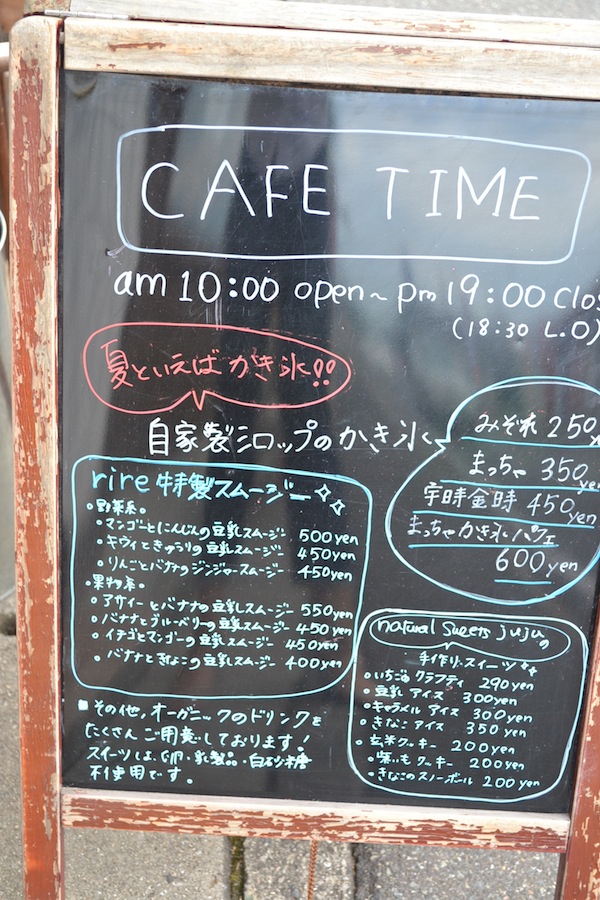 CAFE TIME
am 10:00 open~ pm 19:00 Clos
(18:30 L.O)
夏といえばかき氷!!
自家製シロップのかき氷
みぞれ 250yen
まっちゃ 350yen
宇時金時 450yen
まっちゃかき氷パフェ
600yen
rire 特製スムージー
。野菜系。
・マンゴーとにんじんの豆乳スムージー 500yen
・キウィときゅうりの豆乳スムージー 450yen
・りんごとバナナのジンジャースムージー 450yen
。果物系。
・アサイーとバナナの豆乳スムージー 550yen
・バナナとブルーベリーの豆乳スムージー 450yen
・イチゴとマンゴーの豆乳スムージー 450yen
・バナナときなこの豆乳スムージー 400yen
natural sweets jujuの
手作りスイーツ
・いちごのクラフティ 290yen
・豆乳アイス 300yen
・キャラメルアイス 300yen
・きなこアイス 350yen
・玄米クッキー 200yen
・紫いもクッキー 200yen
・きなこのスノーボール 200yen
■その他、オーガニックのドリンクを
たくさんご用意しております!
スイーツは、卵・乳製品・白砂糖
不使用です。